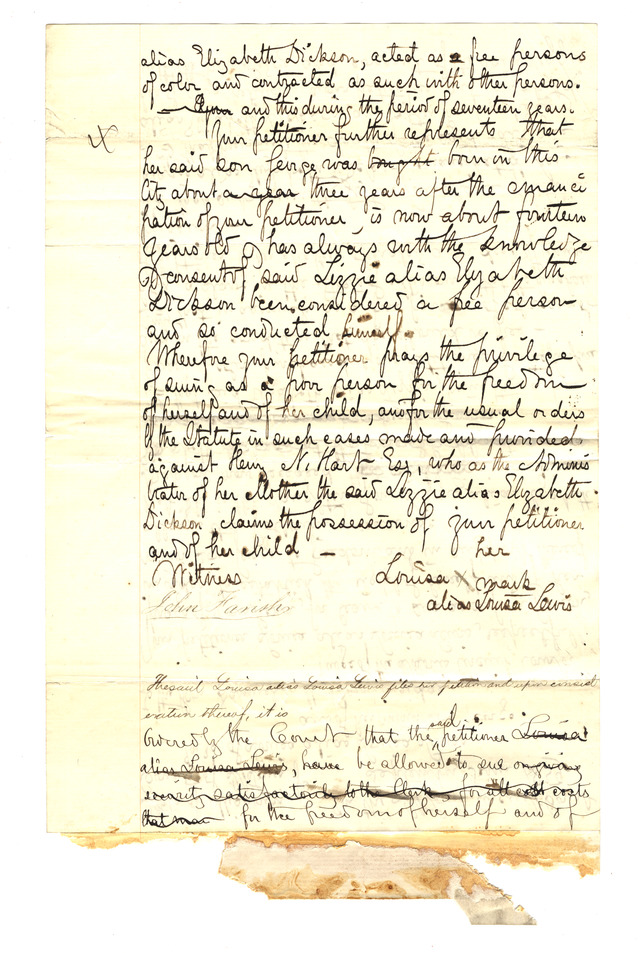 alias Elizabeth Dickson, acted as a free persons
of color and contracted as such with other persons.
— and this during the period of seventeen years.
Your petitioner further represents that
her said son George was bought born in this
City about a year three years after the emanci
pation of your petitioner is now about fourteen
years old & has always with the knowledge
& consent of, said Lizzie alias Elyzabeth
Dickson been considered a free person
and so conducted himself.
Wherefore your petitioner prays the privilege
of suing as a poor person for the freedom
of herself and of her child, and for the usual orders
of the Statute in such cases made and provided
against Henry N. Hart Esq, who as the Adminis
trator of her Mother the said Lizzie alias Elizabeth
Dickson claims the possession of your petitioner
and of her child — her
Witness Louisa X mark
John alias Louisa Lewis
The said Louisa alias Louisa Lewis files her petition and upon consid
eration thereof, it is
Ordered by the Court that the said petitioner Louisa
alias Louisa Lewis, have be allowed to sue on giving
security satisfactorily to the Clerk, for all cost costs
that may for the freedom of herself and of